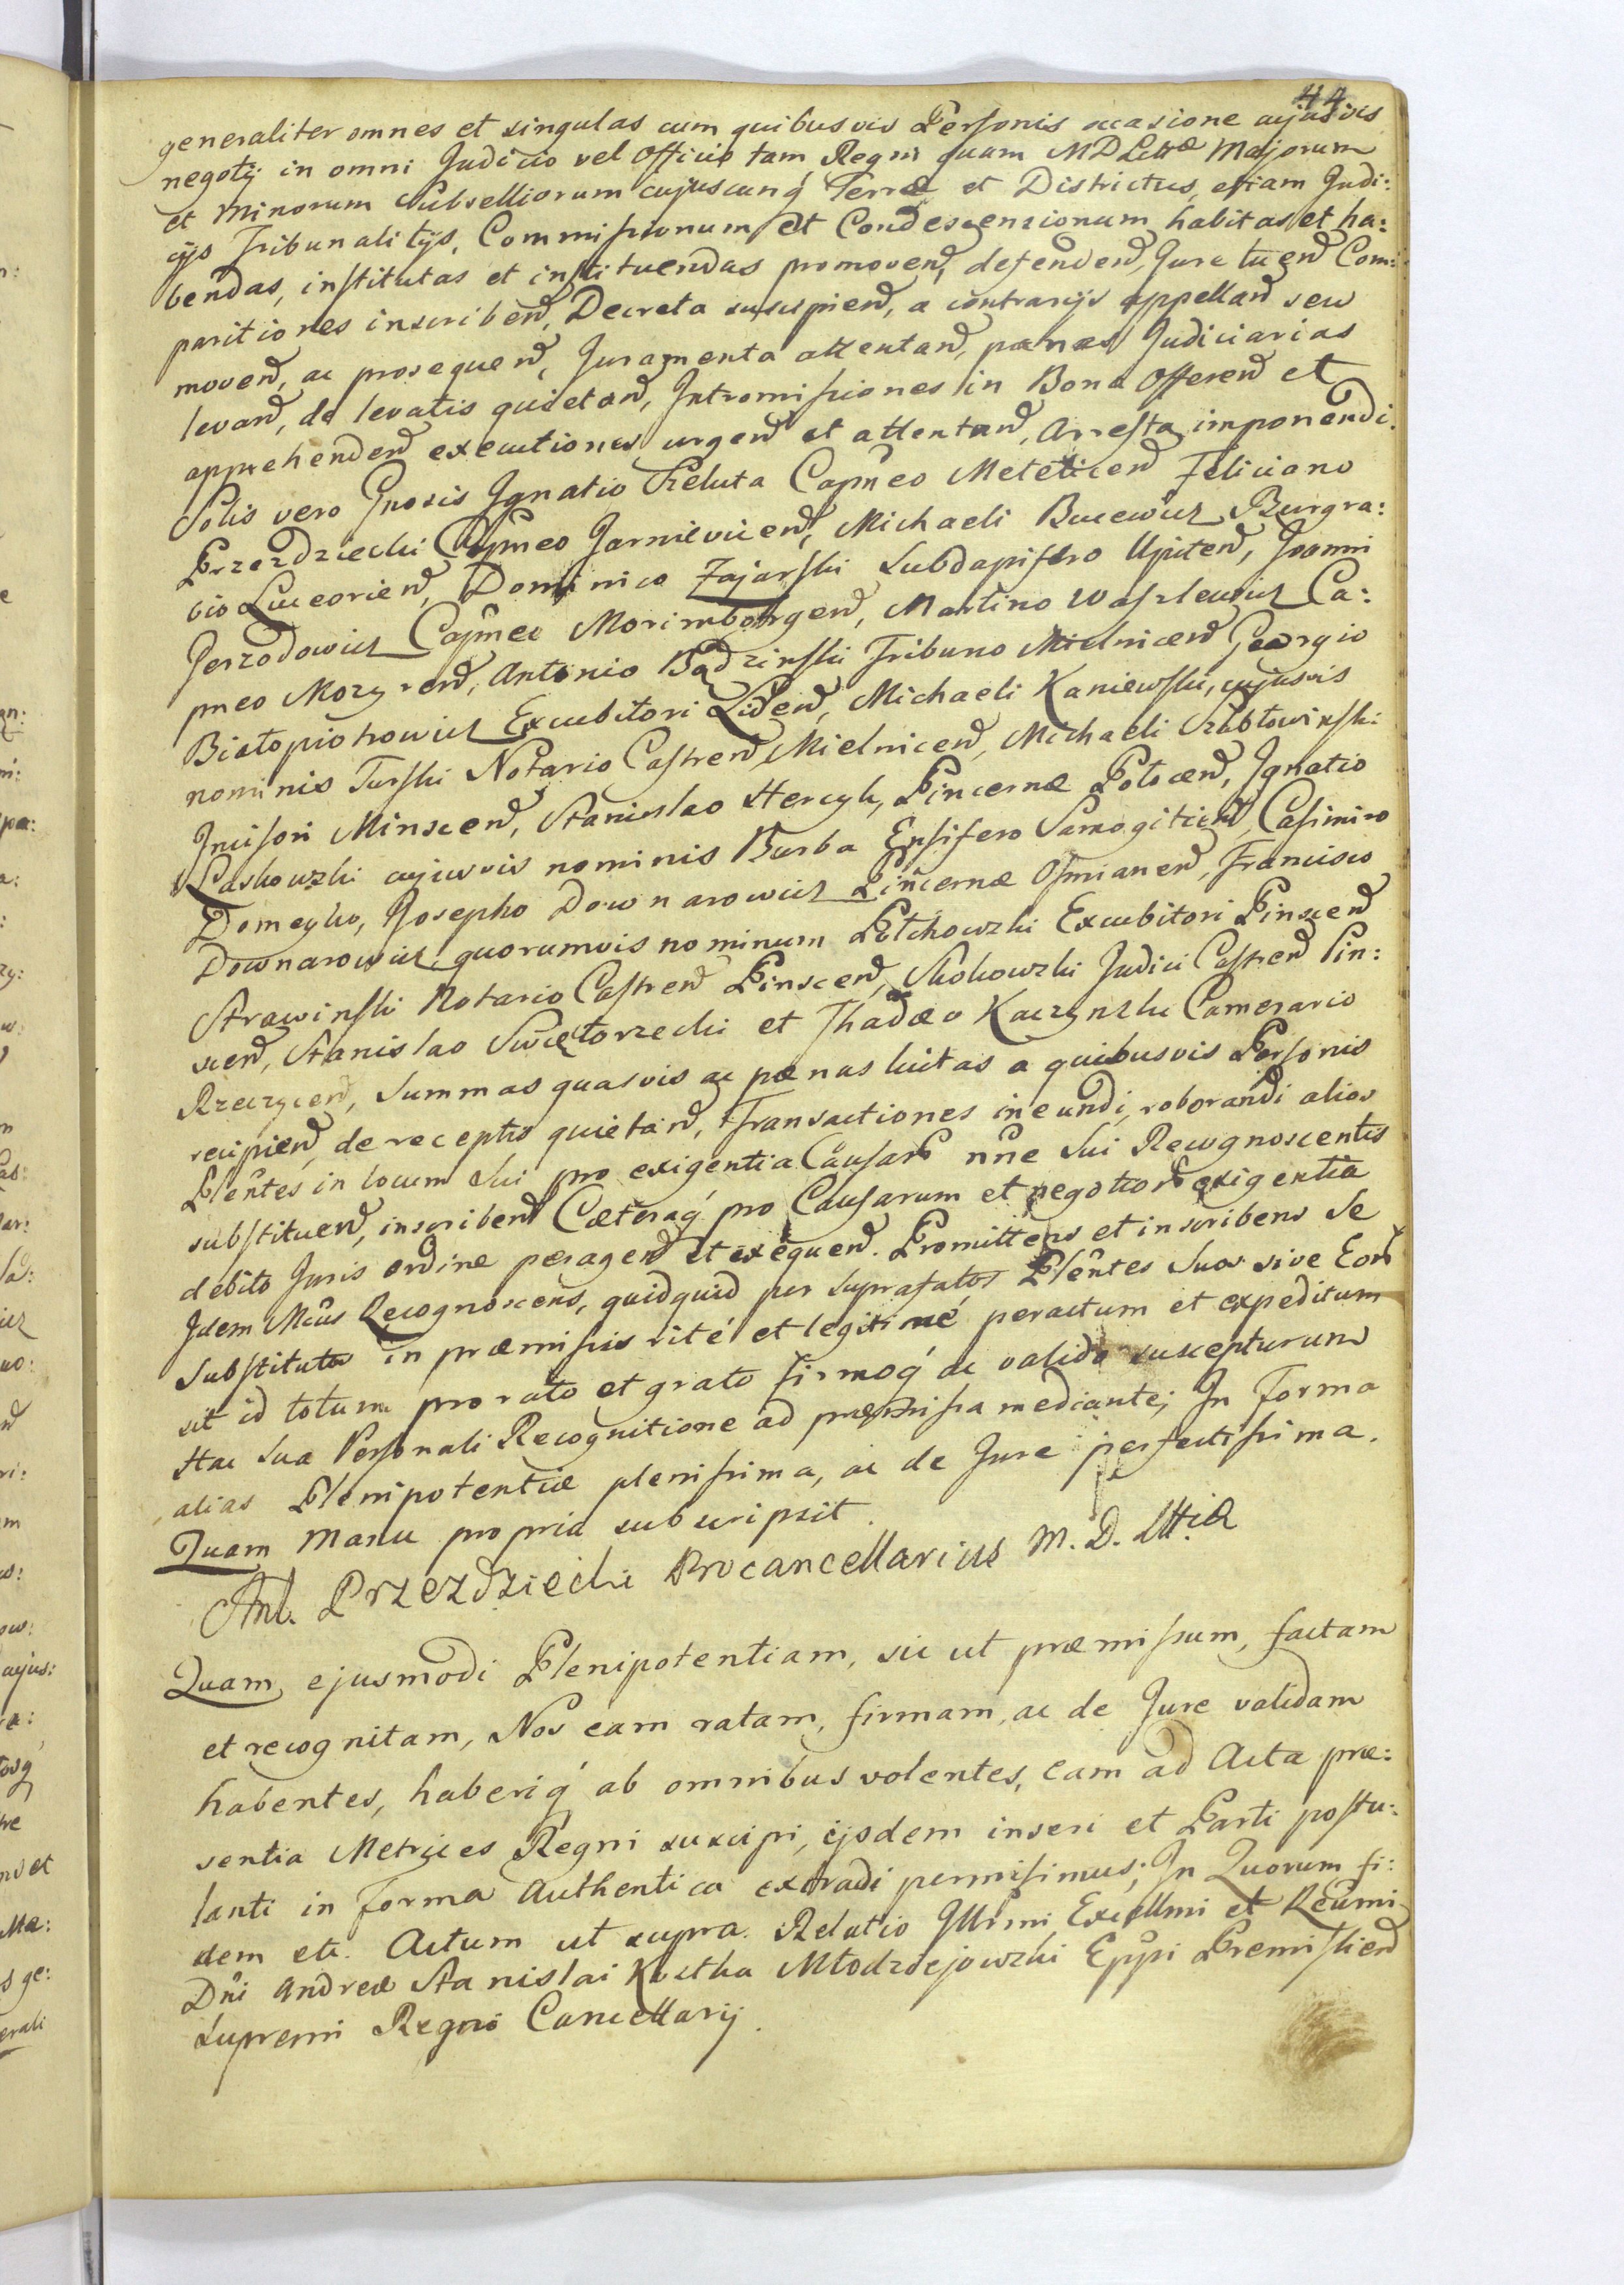 44
generaliter omnes et singulas cum quibusvis Personis occasione cujusvis
negotij in omni Judicio vel Officio tam Regni quam M D Litt͠æ Majorum
et Minorum Subselliorum cujuscunq́ Terræ et Districtus, etiam Judi:
cijs Tribunalitijs, Commissionum et Condescensionum habitas et ha:
bendas, institutas et instituendas promovend̃, defendend̃, Jure tuend̃ Com:
paritiones inscribend̃, Decreta suscipiend̃, a contrarijs appelland̃ seu
movend̃, ac prosequend̃, Juramenta attentand̃, pænas Judiciarias
levand̃, de levatis quietand̃, Intromissiones in Bona Offerend̃ et
apprehendend̃ executiones urgend̃ et attentand̃, Arresta imponendi.
Solis vero Gnosis Ignatio Zeluta Capn̄eo Meteticen̄d Feliciano
Przezdziecki Capn̄eo Jarnieviceñ, Michaeli Bucewicz Burgra:
bio Luceorieñ, Dominico Zajarski Subdapifero Upiteñ, Joanni
Jerzodowicz Capn̄eo Morimborgeñ, Martino Waszlewicz Ca:
pneo Mozyreñ, Antonio Bądzinski Tribuno Mielniceñ Georgio
Białopiotrowicz Excubitori Lideñ, Michaeli Kaniewski, cujusvis
nominis Turski Notario Castreñ Mielniceñ, Michaeli Szabłowinski
Incisori Minsceñ, Stanislao Hercyk, Pincernæ Potoceñ, Ignatio
Laskowski cujusvis nominis Burba Ensifero Samogitieñ, Casimiro
Domeyko, Josepho Downarowicz Pincernæ Osmianeñ, Francisco
Downarowicz quorumvis nominum Potchowski Excubitori Pinsceñ
Strawinski Notario Castreñ Pinsceñ, Skokowski Judici Castreñ Pin:
sceñ, Stanislao Swiętorzecki et Thadæo Kaczynski Camerario
Rzeczyceñ, Summas quasvis ac pænas luitas a quibusvis Personis
recipieñ, de receptis quietañ, Transactiones ineundi, roborandi alios
Pleñtes in locum Sui pro exigentia Causaꝝ nñe Sui Recognoscentis
substitueñ, inscribeñ Cæteraq́ pro Causarum et negotioꝝ exigentia
debito Juris ordine perageñ et exequeñ. Promittens et inscribens Se
Idem Mcus Recognoscens, quidquid per Suprafatos Pleñtes Suos sive Eoꝝ
Substitutos in præmissis rité et legitimé peractum et expeditum
sit id totum pro rato et grato firmoq́ ac valido suscepturum
Hac Sua Personali Recognitione ad præmissa mediante; In Forma
alias Plenipotentiæ plenissima, ac de Jure perfectissima.
Quam Manu propria subscripsit.
Ant. Przezdziecki Procancellarius M. D. Litt:æ
Quam, ejusmodi Plenipotentiam, sic ut præmissum, factam
et recognitam, Nos eam ratam, firmam, ac de Jure validam
habentes, haberiq́ ab omnibus volentes, Eam ad Acta præ:
sentia Metrices Regni suscipi, ejsdem inseri et Parti postu:
lanti in Forma Authentica extradi permisimus; In Quorum fi:
dem etc. Actum ut supra. Relatio Illrmi Excellmi et Reũmi
Dñi Andreæ Stanislai Kostka Młodziejowski Eppi Premislieñ
Supremi Regni Cancellarij.